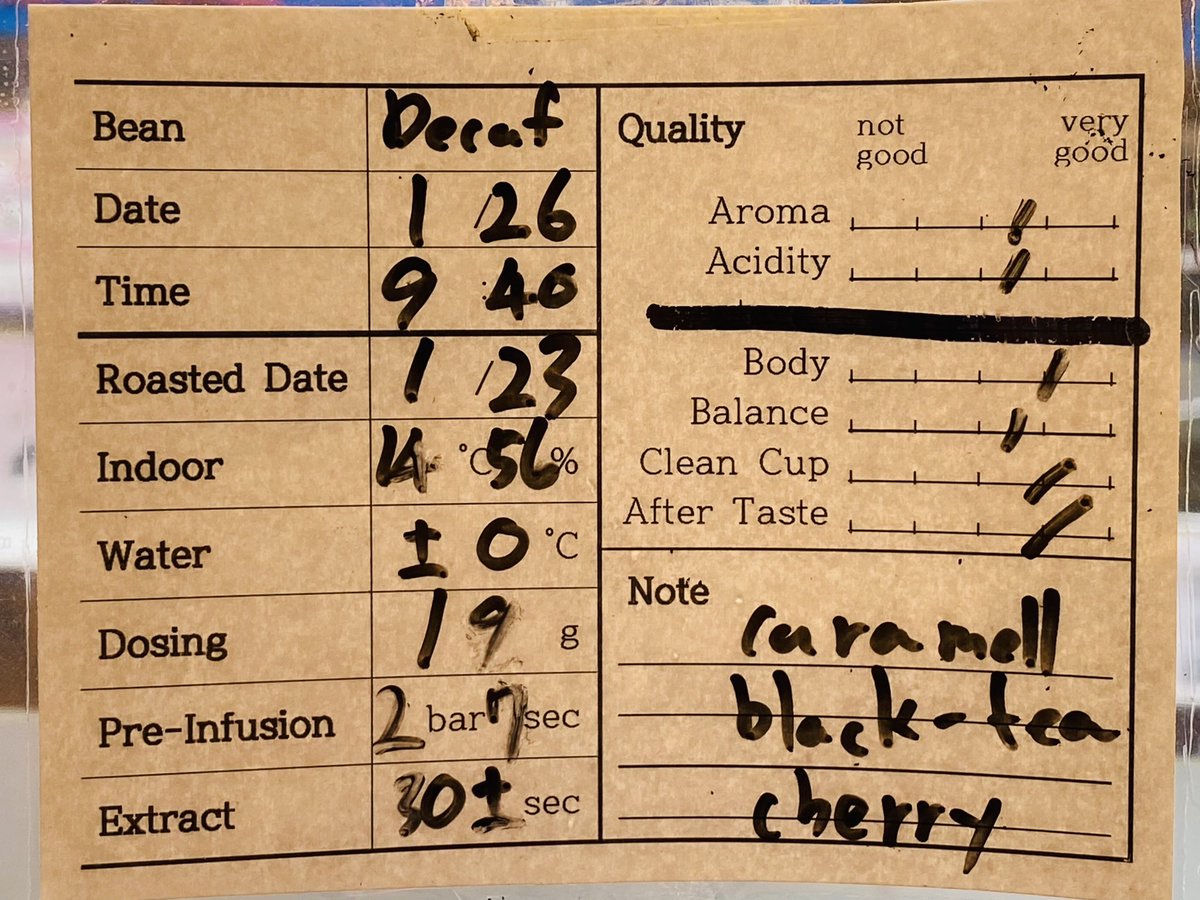 Bean Decaf
Date 1 /26
Time 9 :40
Roasted Date 1 /23
Indoor 14 °C 56 %
Water ± 0 °C
Dosing 19 g
Pre-Infusion 2 bar 7 sec
Extract 30± sec
Quality not good very good
Aroma
Acidity
Body
Balance
Clean Cup
After Taste
Note
caramell
black-tea
cherry